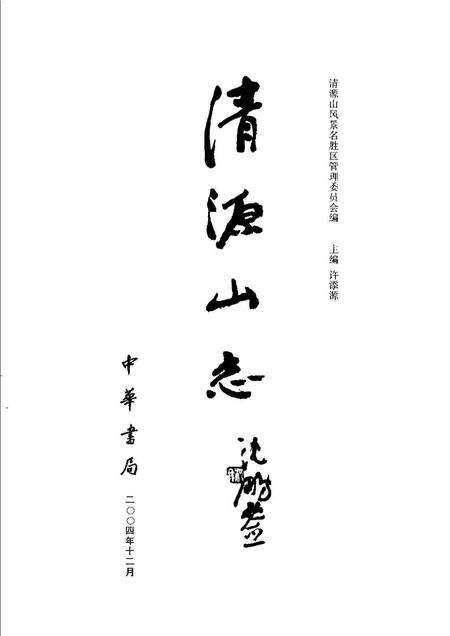 清源山风景名胜区管理委员会编 主编 许添源
清源山志
沈鹏
中华书局
二〇〇四年十二月